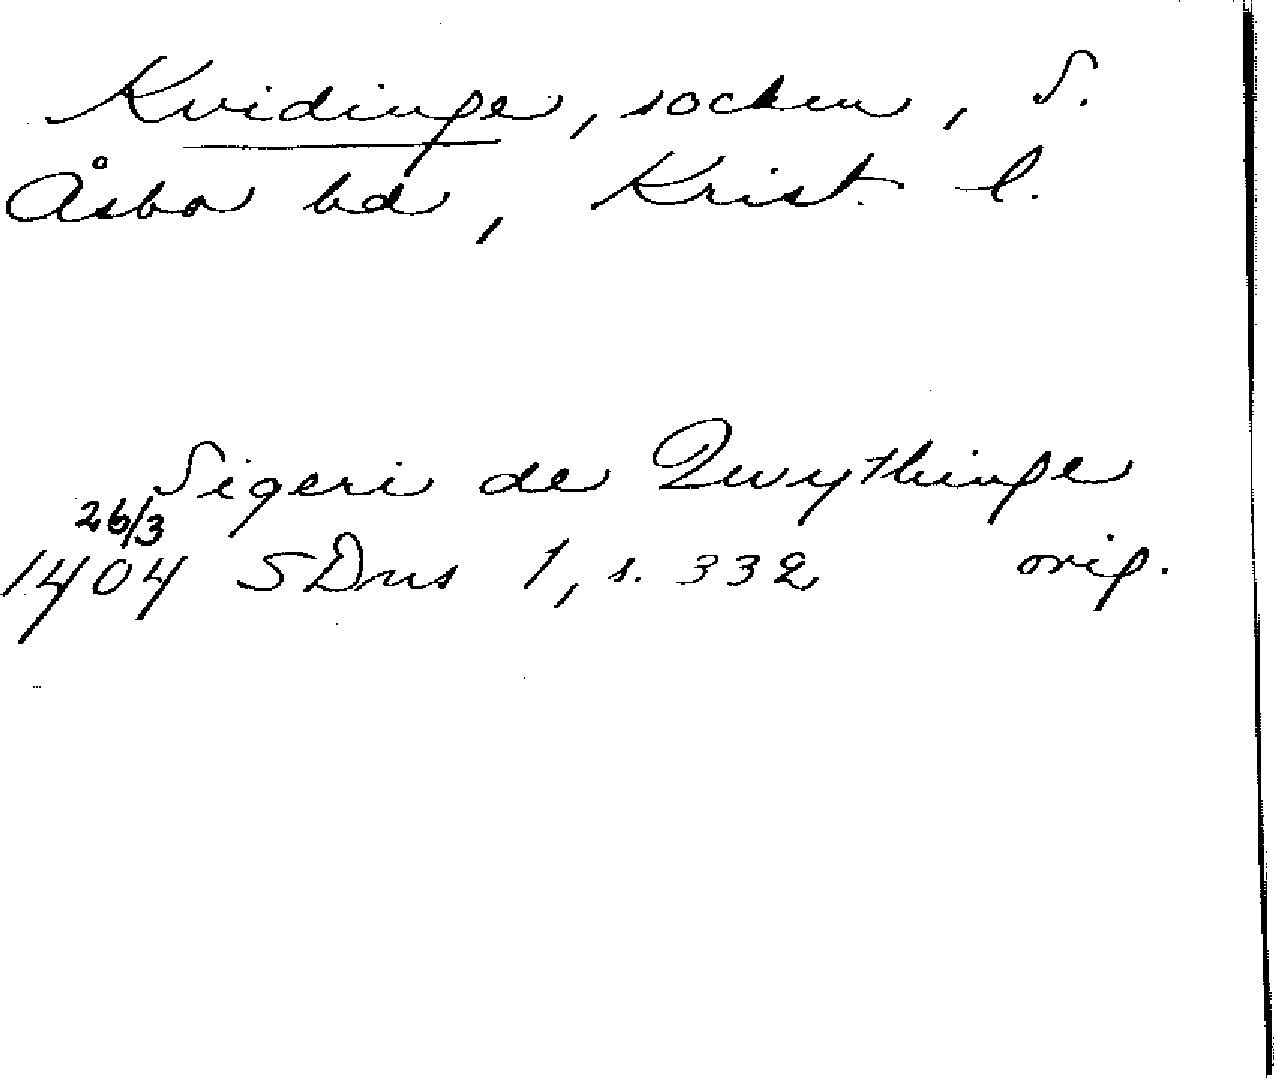 Kvidinge, socken, S.
Åsbo hd, Krist. l.
Sigeri de Qwythinge
26/3
1404 SDns 1, s. 332 orig.